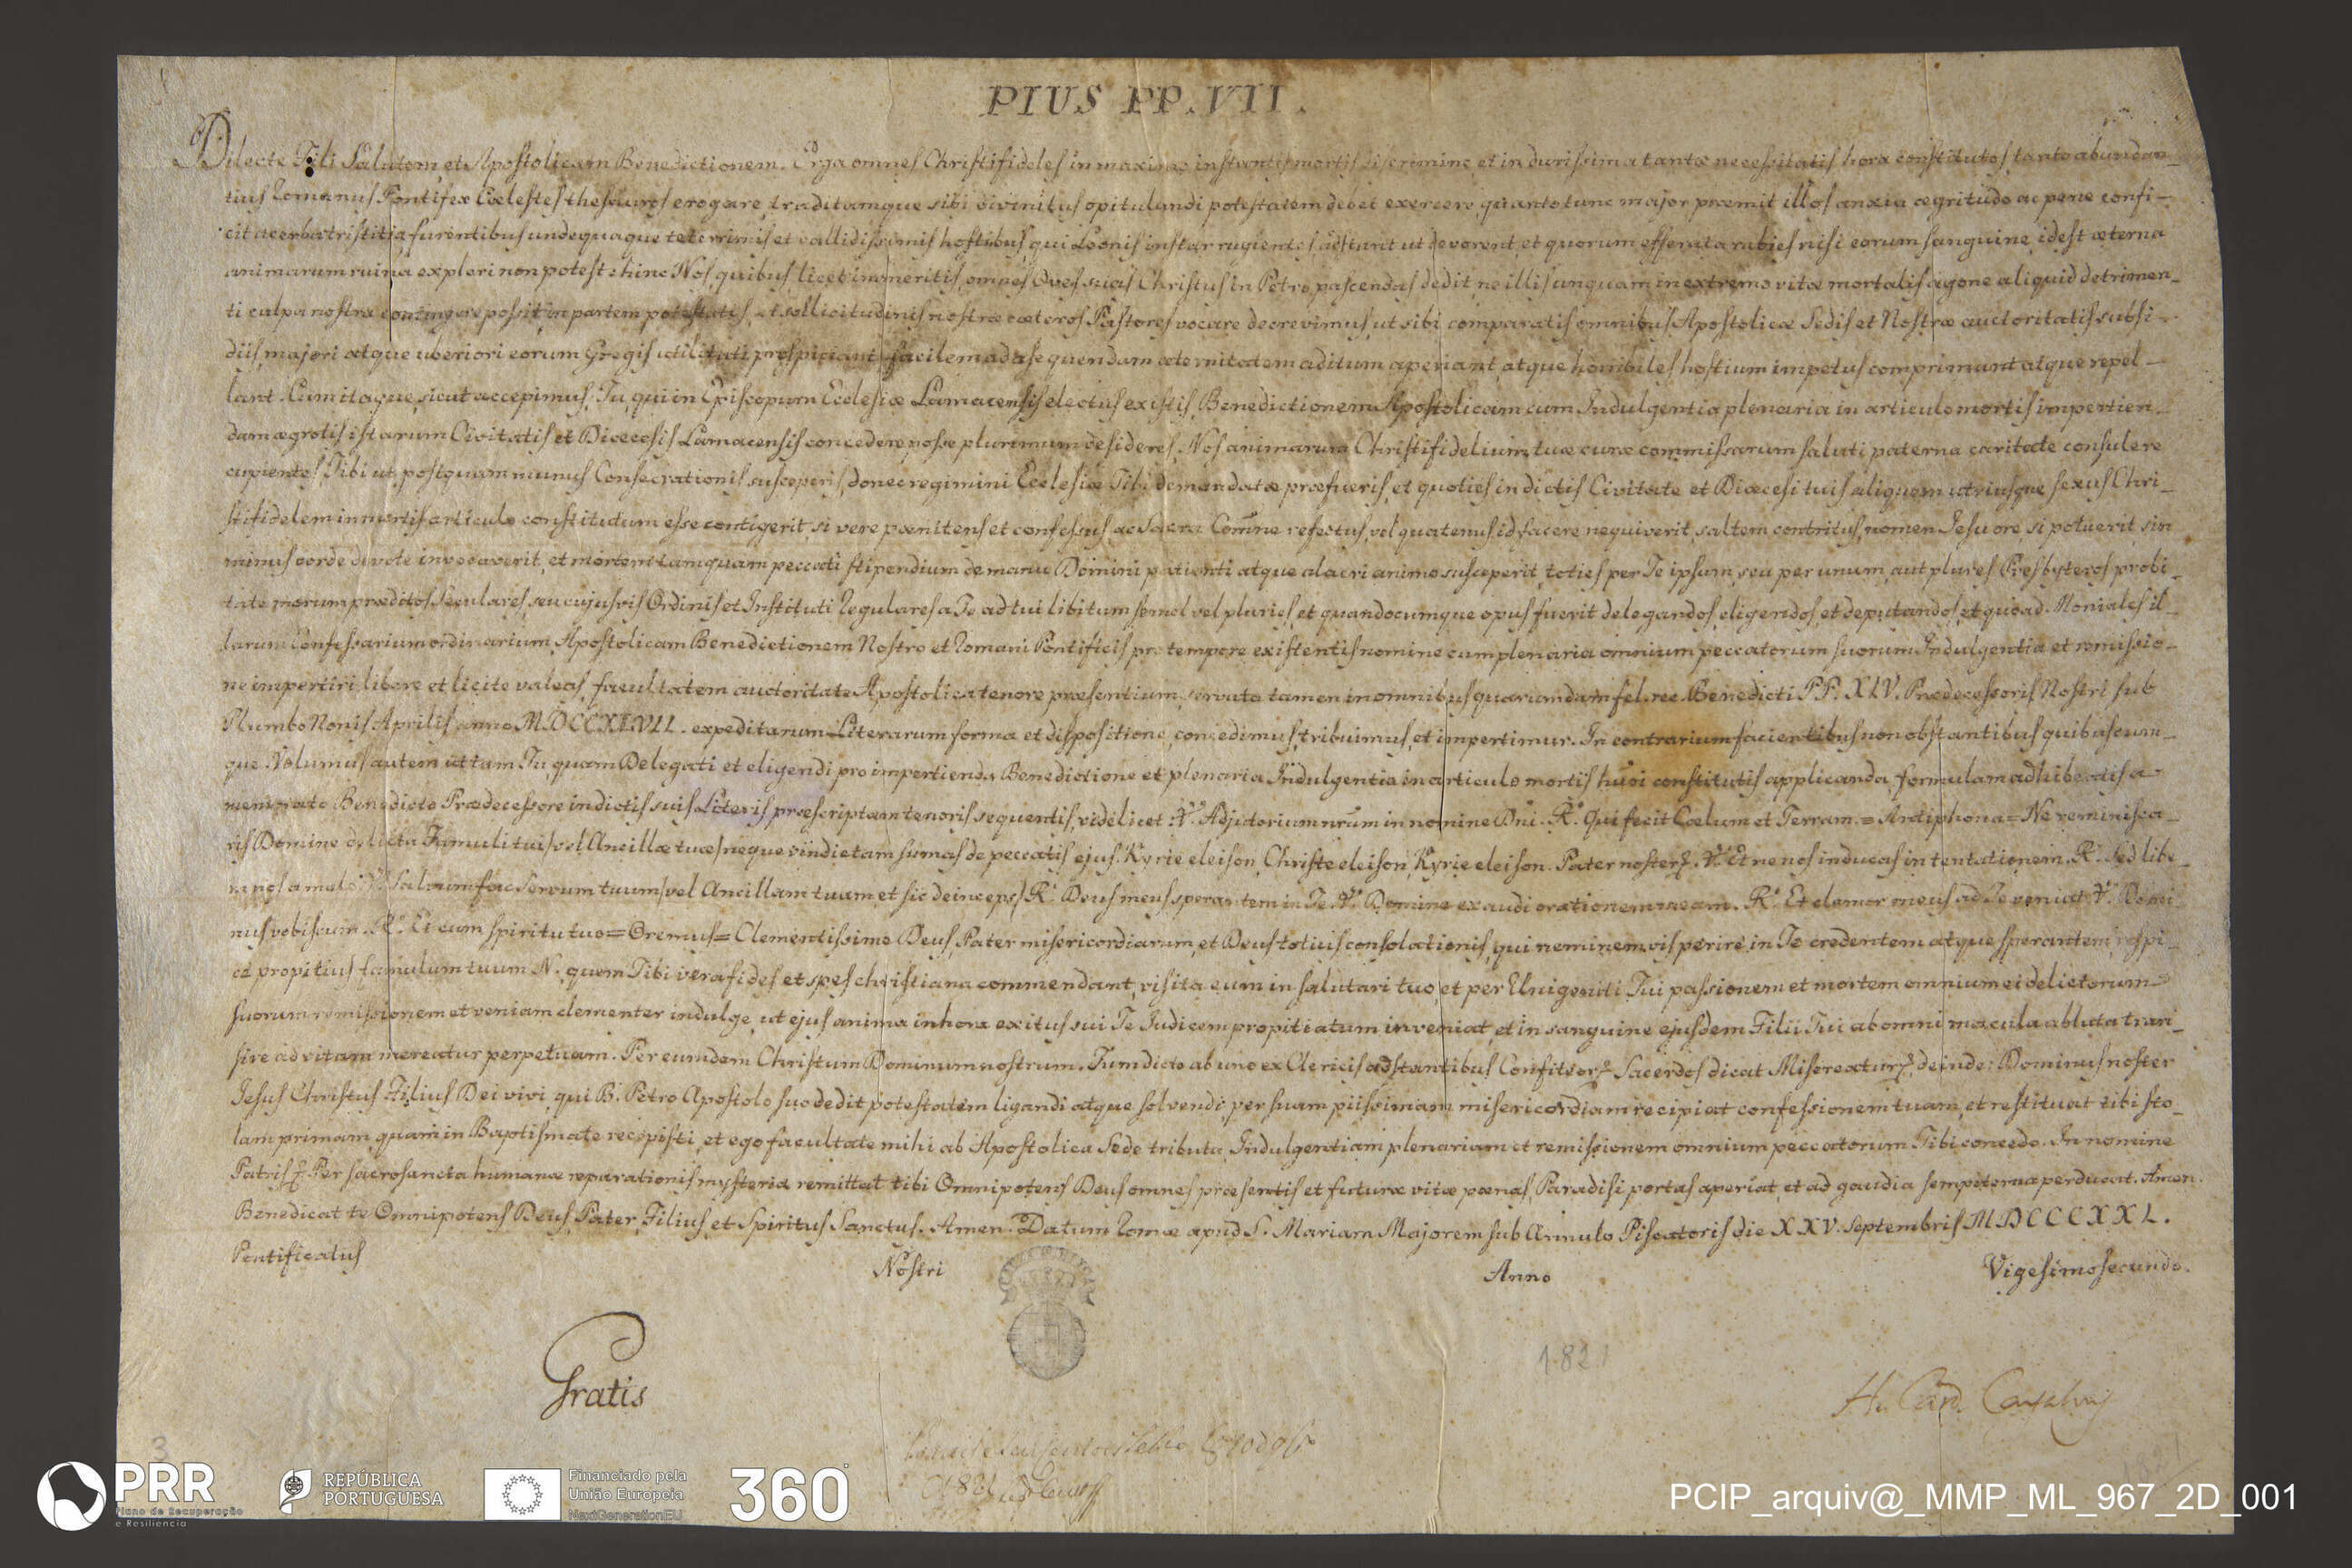 PIUS PP. VII.
Dilecte Fili Salutem, et Apostolicam Benedictionem. Erga omnes Christifideles in maximo instantis mortis discrimine, et in durissima tantæ necessitatis hora constitutos tanto abundan_
tius Romanus Pontifex Cœlestes thesauros erogare, traditamque sibi divinitus opitulandi potestatem debet exercere, quanto tunc major præmit illos anxia ægritudo ac pene confi_
cit acerba tristitia, furentibus undequaque teterrimis et callidissimis hostibus, qui Leonis instar rugientes, adstant ut devorent, et quorum efferata rabies nisi eorum sanguine, idest æterna
animarum ruina expleri non potest. Hinc Nos, quibus licet immeritis, omnes Oves suas Christus in Petro pascendas dedit, ne illis unquam in extremo vitæ mortalis agone aliquid detrimen_
ti culpa nostra contingere possit, in partem potestatis, et sollicitudinis nostræ cæteros Pastores vocare decrevimus, ut sibi comparatis omnibus Apostolicæ Sedis et Nostræ auctoritatis subsi_
diis, majori atque uberiori eorum Gregis utilitati prospiciant, facilem ad assequendam æternitatem aditum aperiant, atque horribiles hostium impetus comprimant atque repel_
lant. Cum itaque, sicut accepimus, Tu, qui in Episcopum Ecclesiæ Lamacensis electus existis Benedictionem Apostolicam cum Indulgentia plenaria in articulo mortis impertien_
dam ægrotis istarum Civitatis et Diœcesis Lamacensis concedere posse plurimum desideres, Nos animarum Christifidelium, tuæ curæ commissarum saluti paterna caritate consulere
cupientes Tibi ut, postquam munus Consecrationis susceperis, donec regimini Ecclesiæ Tibi demandatæ præfueris et quoties in dictis Civitate et Diœcesi tuis aliquem utriusque sexus Chri_
stifidelem in mortis articulo constitutum esse contigerit, si vere pœnitens et confessus ac Sacra Comne refectus, vel quatenus id facere nequiverit, saltem contritus, nomen Jesu ore si potuerit, sin
minus corde devote invocaverit, et mortem tamquam peccati stipendium de manu Domini patienti atque alacri animo susceperit, toties per Te ipsum, seu per unum, aut plures Presbyteros probi_
tate morum præditos Seculares, seu cujusvis Ordinis et Instituti Regulares a Te ad tui libitum semel vel pluries et quandocumque opus fuerit delegandos, eligendos, et deputandos, et quoad Moniales il_
larum Confessarium ordinarium, Apostolicam Benedictionem Nostro et Romani Pontificis pro tempore existentis nomine cum plenaria omnium peccatorum suorum Indulgentia et remissio_
ne impertiri libere et licite valeas, facultatem auctoritate Apostolica tenore præsentium, servata tamen in omnibus quarumdam fel. rec. Benedicti PP. XIV. Prædecessoris Nostri sub
Plumbo Nonis Aprilis anno MDCCXLVII. expeditarum Literarum forma et dispositione, concedimus, tribuimus, et impertimur. In contrarium facientibus non obstantibus quibuscum_
que. Volumus autem ut tam Tu, quam Delegati et eligendi pro impertienda Benedictione et plenaria Indulgentia in articulo mortis hujusi constitutis applicanda formulam adhibeatis a
memorato Benedicto Prædecessore in dictis suis Literis præscriptam tenoris sequentis, videlicet: ℣. Adjutorium nrum in nomine Dni. ℟. Qui fecit Cœlum et Terram.= Antiphona= Ne reminisca_
ris Domine delicta Famuli tui/vel Ancillæ tuæ/neque vindictam sumas de peccatis ejus. Kyrie eleison, Christe eleison, Kyrie eleison. Pater noster &. ℣. Et ne nos inducas in tentationem. ℟. Sed libe_
ra nos a malo. ℣. Salvum fac Servum tuum/vel Ancillam tuam et sic deinceps/ ℟. Deus meus sperantem in Te. ℣. Domine exaudi orationem meam. ℟. Et clamor meus ad Te veniat. ℣. Domi_
nus vobiscum. ℟. Et cum Spiritu tuo= Oremus= Clementissime Deus, Pater misericordiarum, et Deus totius consolationis, qui neminem vis perire in Te credentem atque sperantem, respi_
ce propitius famulum tuum N. quem Tibi vera fides et spes christiana commendant, visita eum in salutari tuo, et per Unigeniti Tui passionem et mortem omnium ei delictorum
suorum remissionem et veniam clementer indulge, ut ejus anima in hora exitus sui Te Judicem propitiatum inveniat, et in sanguine ejusdem Filii Tui ab omni macula abluta tran_
sire ad vitam mereatur perpetuam. Per eumdem Christum Dominum nostrum. Tum dicto ab uno ex Clericis adstantibus Confiteor & Sacerdos dicat Misereatur &, deinde: Dominus noster
Jesus Christus Filius Dei vivi, qui B. Petro Apostolo suo dedit potestatem ligandi atque solvendi per suam piissimam misericordiam recipiat confessionem tuam, et restituat tibi sto_
lam primam quam in Baptismate recepisti, et ego facultate mihi ab Apostolica Sede tributa Indulgentiam plenariam et remissionem omnium peccatorum Tibi concedo. In nomine
Patris & Per sacrosancta humanæ reparationis mysteria remittat tibi Omnipotens Deus omnes præsentis et futuræ vitæ pœnas, Paradisi portas aperiat, et ad gaudia sempiterna perducat. Amen.
Benedicat te Omnipotens Deus, Pater, Filius, et Spiritus Sanctus. Amen. Datum Romæ apud S. Mariam Majorem sub Annulo Piscatoris die XXV. Septembris MDCCCXXI.
Pontificatus Nostri Anno Vigesimosecundo.
1821
Gratis
H. Card. Consalvi
3
PRR
Plano de Recuperação
e Resiliência
REPÚBLICA
PORTUGUESA
Financiado pela
União Europeia
NextGenerationEU
360°
PCIP_arquiv@_MMP_ML_967_2D_001